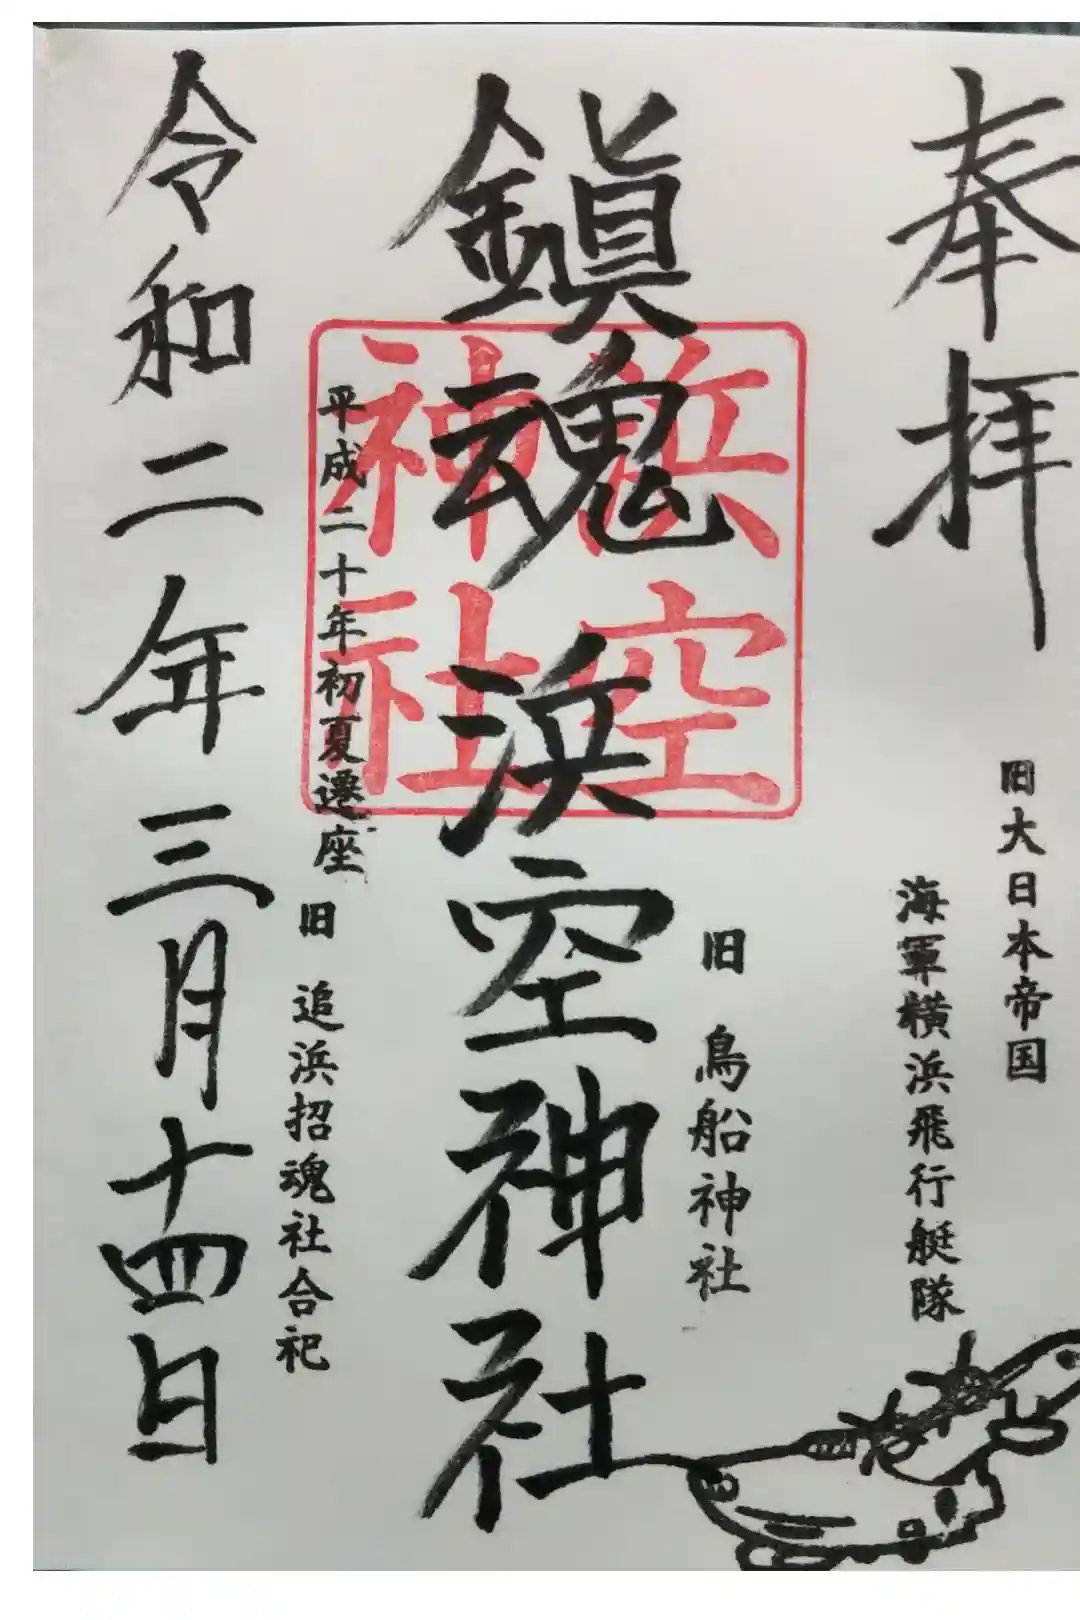 奉拝
旧大日本帝国
海軍横浜飛行艇隊
旧 鳥船神社
鎮魂 浜空神社
浜空
神社
平成二十年初夏遷座
旧 追浜招魂社合祀
令和二年三月十四日